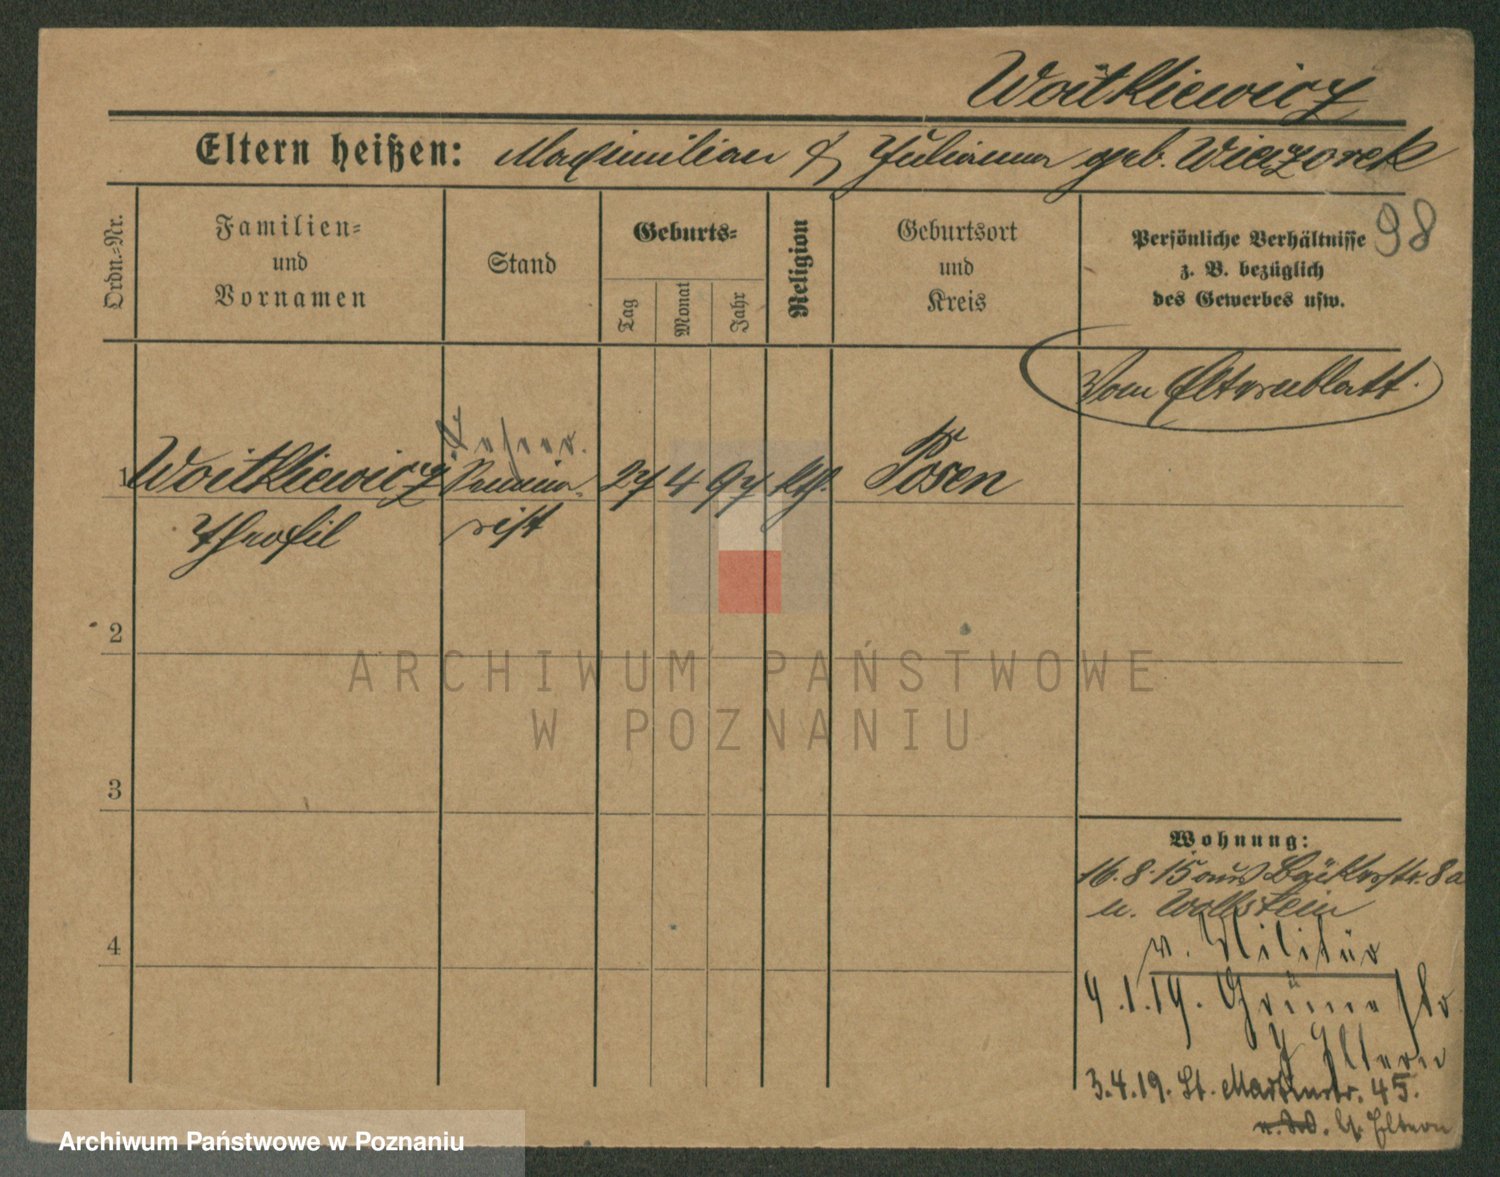 Woitkiewicz
Eltern heißen: Maximilian & Julianna geb. Wieczorek
98
Ordn.-Nr.
Familien-
und
Vornamen
Stand
Geburts-
Tag
Monat
Jahr
Religion
Geburtsort
und
Kreis
Persönliche Verhältnisse
z. B. bezüglich
des Gewerbes usw.
Vom Elternblatt.
Lehrer.
1 Woitkiewicz Semina- 27 4 97 kth. Posen
Theofil rist
2
3
4
Wohnung:
16.8.15 aus Bäckerstr. 8a
u. Wollstein
v. Militär
4.1.19. Grüne
Eltern
3.4.19. St. Martinstr. 45.
b. Eltern
ARCHIWUM PAŃSTWOWE
W POZNANIU
Archiwum Państwowe w Poznaniu